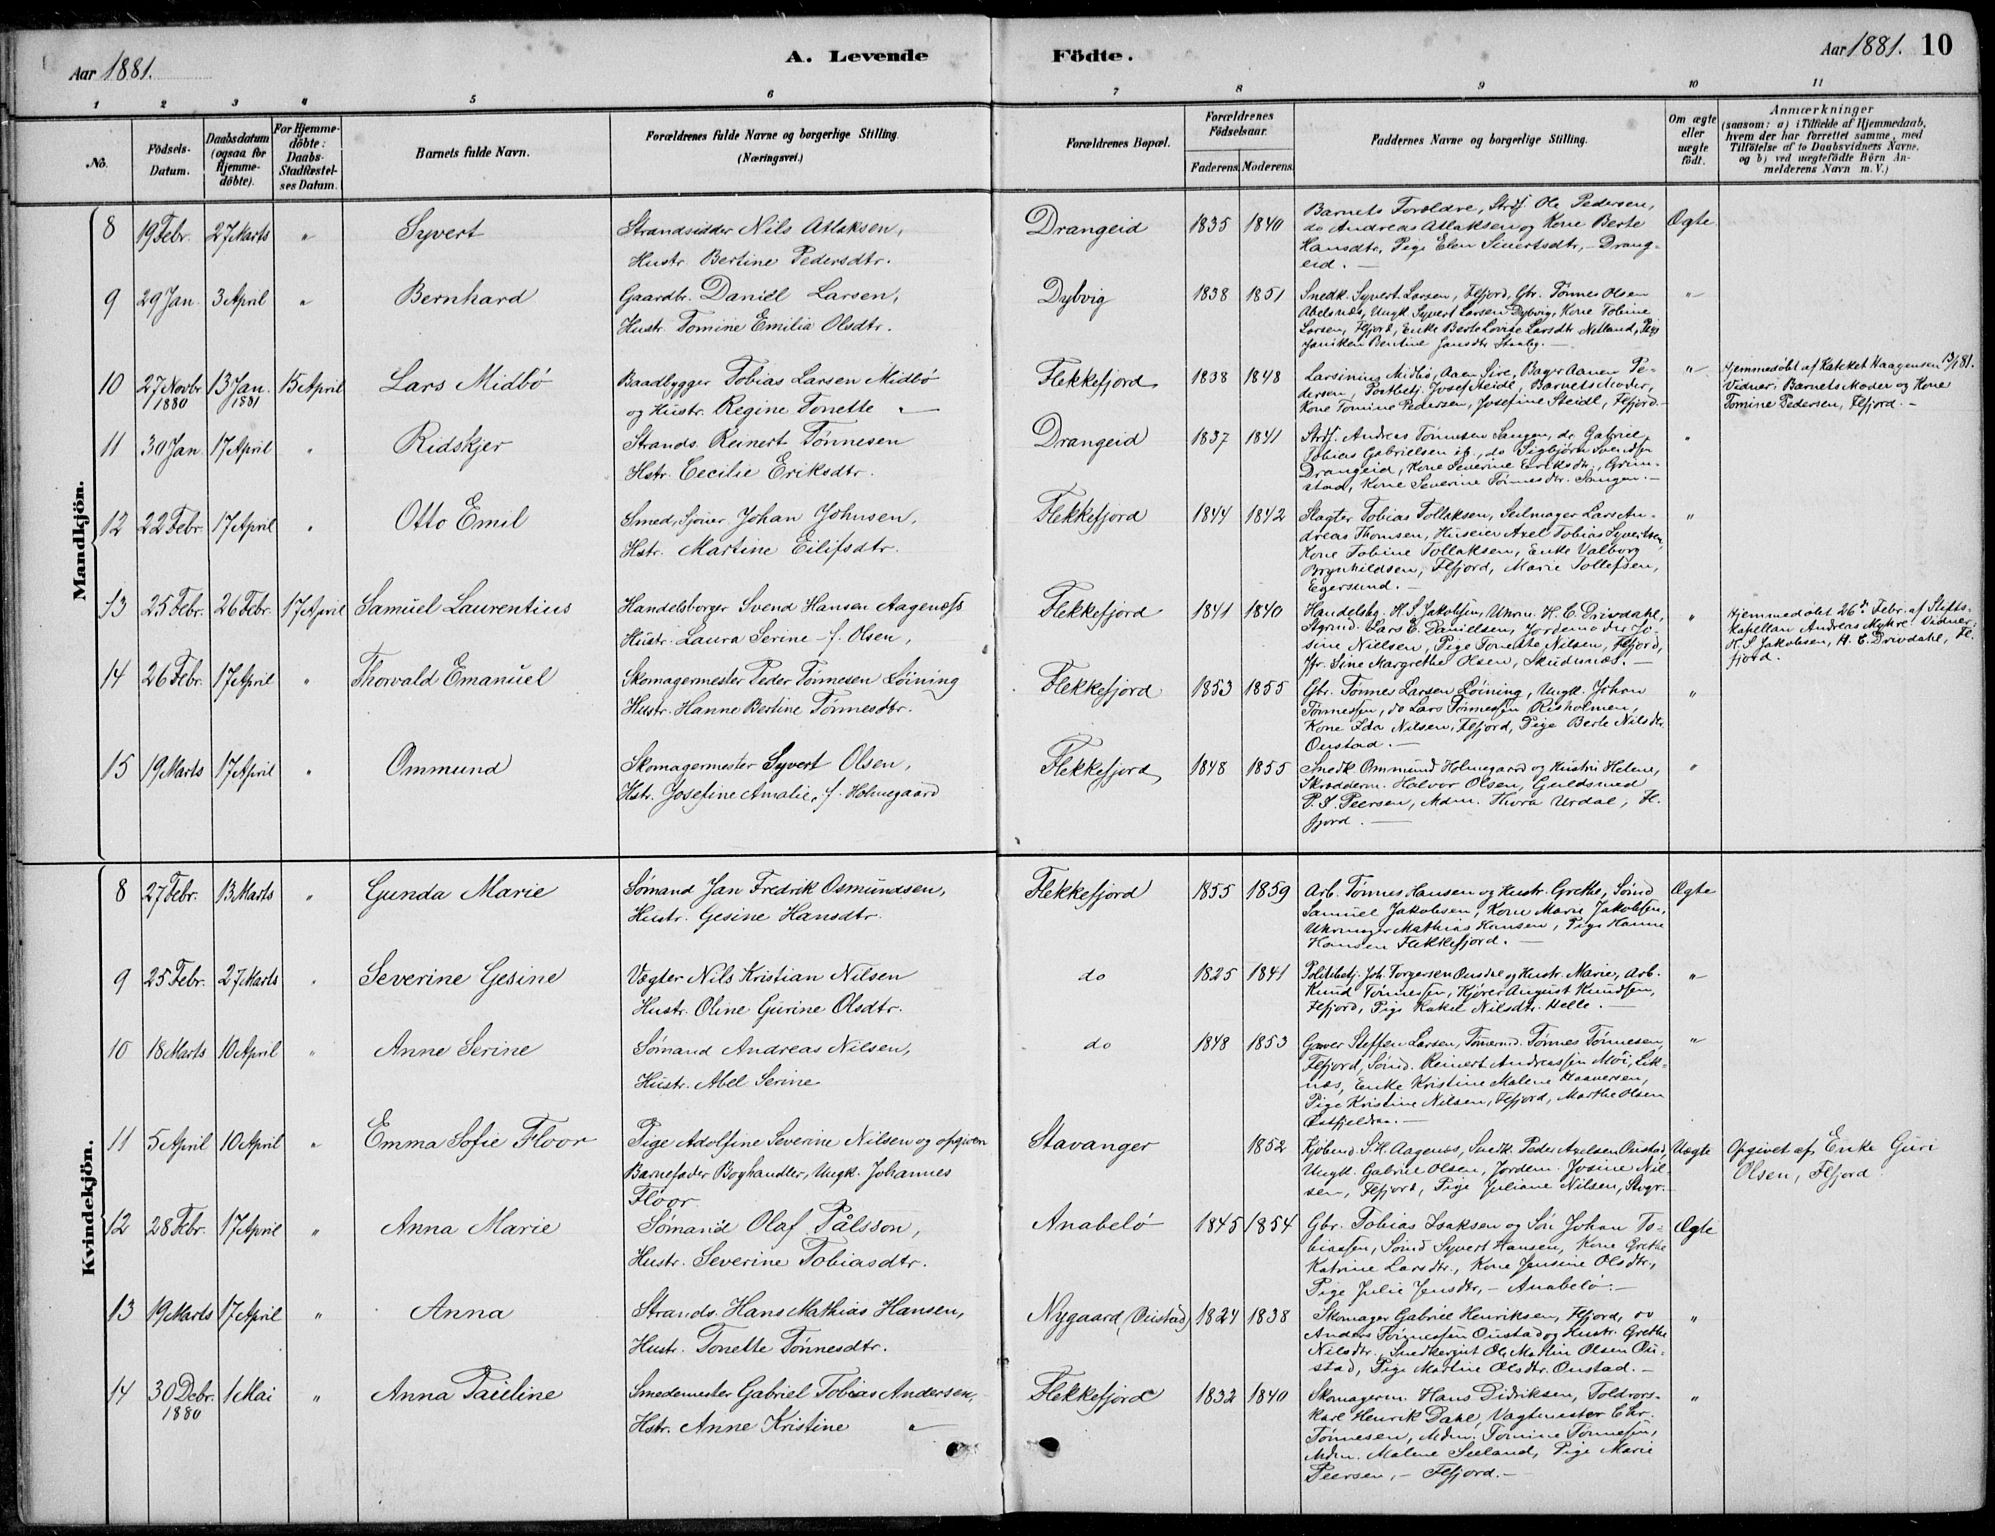 Aar 1881.
A. Levende Födte.
Aar 1881. 10
1 2 3 4 5 6 7 8 9 10 11
No.
Födsels-Datum.
Daabsdatum (ogsaa for Hjemme-döbte).
For Hjemme-döbte: Daabs-Stadfæstel-ses Datum.
Barnets fulde Navn.
Forældrenes fulde Navne og borgerlige Stilling. (Næringsvei.)
Forældrenes Bopæl.
Forældrenes Födselsaar.
Faderens. Moderens.
Faddernes Navne og borgerlige Stilling.
Om ægte eller uægte födt.
Anmærkninger
(saasom: a) i Tilfælde af Hjemmedaab,
hvem der har forrettet samme, med
Tilföielse af to Daabsvidners Navne,
og b) ved uægtefödte Börn An-
melderens Navn m. V.)
Mandkjön.
8 19 Febr. 27 Marts " Syvert
Strandsidder Nils Atlaksen,
Hustr. Bertine Pedersdtr.
Drangeid 1835 1840
Barnets Forældre, Strdf. Ole Pedersen,
do Andreas Atlaksen og Kone Berte
Hansdtr, Pige Elen Sivertsdtr, - Drang-
eid. -
Ægte
9 29 Jan. 3 April " Bernhard
Gaardbr. Daniel Larsen,
Hustr. Tomine Emilia Olsdtr.
Dybvig 1838 1851
Snedk. Syvert Larsen, Flfjord, Gbr. Tønnes Olsen
Abelsnæs, Ungk. Syvert Larsen Dybvig, Kone Tobine
Larsen, Flfjord, Enke Berte Lovise Larsdtr Netland, Pige
Bentine Jansdtr
"
10 27 Novbr 1880 13 Jan. 1881 15 April Lars Midbö
Baadbygger Tobias Larsen Midbö
og Hustr. Regine Tonette "
Flekkefjord 1838 1848
Larsinius Midbö, Aaen Sire, Bager Aanen Pe-
dersen, Postbetj. Josef Seidl, Barnets Moder,
Kone Tomine Pedersen, Josefine Steidl, Flfjord. -
"
Hjemmedöbt af Kateket Haagensen 13/1 81.
Vidner: Barnets Moder og Kone
Tomine Pedersen, Flfjord. -
11 30 Jan. 17 April " Ridskjer
Strands. Reinert Tönnesen
Hstr. Cecilie Eriksdtr.
Drangeid 1837 1841
Strdf. Andreas Tönnesen Sangen, do Gabriel,
Tobias Gabrielsen ib., do Sigbjörn Svendsen
Drangeid, Kone Severine Eriksdtr, Grim-
stad, Kone Severine Tönnesdtr. Sangen. -
"
12 22 Febr. 17 April " Otto Emil
Smed, Johan Johnsen,
Hstr. Martine Eilifsdtr.
Flekkefjord 1844 1842
Slagter Tobias Tollaksen, Seilmager Lars An-
dreas Thomsen, Huseier Axel Tobias Syvertsen,
Kone Tobine Tollaksen, Enke Valborg
Brynhildsen, Flfjord, Marie Tollefsen,
Egersund. -
"
13 25 Febr. 26 Febr. 17 April Samuel Laurentius
Handelsborger Svend Hansen Aagenæss
Hustr. Laura Serine f. Olsen,
Flekkefjord 1841 1840
Handelsbg. H. S. Jakobsen, Uhrm. H. C. Drivdahl,
Styrmd. Lars E. Danielsen, Jordemoder Jo-
sine Nielsen, Pige Tonette Nilsen, Flfjord,
Jfr. Sine Margrethe Olsen, Skudesnæs. -
"
Hjemmedöbt 26de Febr. af Stifts-
kapellan Andreas Myhre. Vidner:
H. S. Jakobsen, H. C. Drivdahl, Fl.
fjord.
14 26 Febr. 17 April " Thorvald Emanuel
Skomagermester Peder Tönnesen Löining
Hustr. Hanne Bertine Tönnesdtr.
Flekkefjord 1853 1855
Gbr. Tönnes Larsen Löining, Ungk. Johan
Tönnessen, do Lars Tönnessen Risholmen,
Kone Ida Nilsen, Flfjord, Pige Berte Nilsdtr.
Oustad. -
"
15 19 Marts 17 April " Ommund
Skomagermester Syvert Olsen,
Hstr. Josefine Amalie, f. Holmegaard
Flekkefjord 1848 1855
Snedk. Ommund Holmegaard og Hustru Helene,
Skrædderm. Halvor Olsen, Guldsmed
P. S. Peersen, Mdm. Thora Urdal, Fl.
fjord. -
"
Kvindekjön.
8 27 Febr. 13 Marts " Gunda Marie
Sömand Jan Fredrik Osmundsen,
Hustr. Gesine Hansdtr.
Flekkefjord 1855 1859
Arb. Tönnes Hansen og Hustr. Grethe, Sömd
Samuel Jakobsen, Kone Marie Jakobsen,
Uhrmager Mathias Hansen, Pige Hanne
Hansen Flekkefjord. -
Ægte
9 25 Febr. 27 Marts " Severine Gesine
Vægter Nils Kristian Nilsen
Hustr. Oline Gurine Olsdtr.
do 1825 1841
Politibetj. Joh. Torgersen og Hustr. Marie, Arb.
Knud Tönnessen, Kjörer August Knudsen,
Flfjord, Pige Rakel Nilsdtr. Helle. -
"
10 18 Marts 10 April " Anne Serine
Sömand Andreas Nilsen,
Hustr. Abel Serine
do 1848 1853
Garver Steffen Larsen, Tömrmd. Tönnes Tönnesen,
Flfjord, Sömd. Reinert Andreassen Möi, Lik-
næs, Enke Kristine Malene Haaversen,
Pige Kristine Nilsen, Flfjord, Marthe Olsen

"
11 5 April 10 April " Emma Sofie Floor
Pige Adolfine Severine Nilsen og opgiven
Barnefader Boghandler, Ungk. Johannes
Floor
Stavanger 1852
Kjöbmd. S. H. Aagenæs, Snedk. Peder Axelsen Oustad,
Ungk. Gabriel Olsen, Jordem. Josine Nil-
sen, Flfjord, Pige Juliane Nilsen, Stvgr. -
Uægte
Opgivet af Enke Guri
Olsen, Flfjord
12 28 Febr. 17 April " Anna Marie
Sömand Olaf Pålsson,
Hustr. Severine Tobiasdtr.
Anabelö 1845 1854
Gbr. Tobias Isaksen og Sön Johan To-
biassen, Sömd Syvert Hansen, Kone Grethe
Katrine Larsdtr., Kone Jensine Olsdtr.,
Pige Julie Jensdtr, - Anabelö. -
Ægte
13 19 Marts 17 April " Anna
Strands. Hans Mathias Hansen,
Hustr. Tonette Tönnesdtr.
Nygaard, (Oustad) 1824 1838
Skomager Gabriel Henriksen, Flfjord,
Anders Tönnessen Oustad og Hustr. Grethe
Nilsdtr., Snedkergut Ole Martin Olsen Ou-
stad, Pige Martine Olsdtr. Oustad. -
"
14 30 Debr. 1880 1 Mai " Anna Pauline
Smedemester Gabriel Tobias Andersen,
Hstr. Anne Kristine "
Flekkefjord 1832 1840
Skomagerm. Hans Didriksen, Toldrors-
karl Henrik Dahl, Vagtmester Chr.
Tönnesen, Mdm. Tomine Tönnesen,
Mdm. Malene Seeland, Pige Marie
Peersen, - Flfjord. -
"